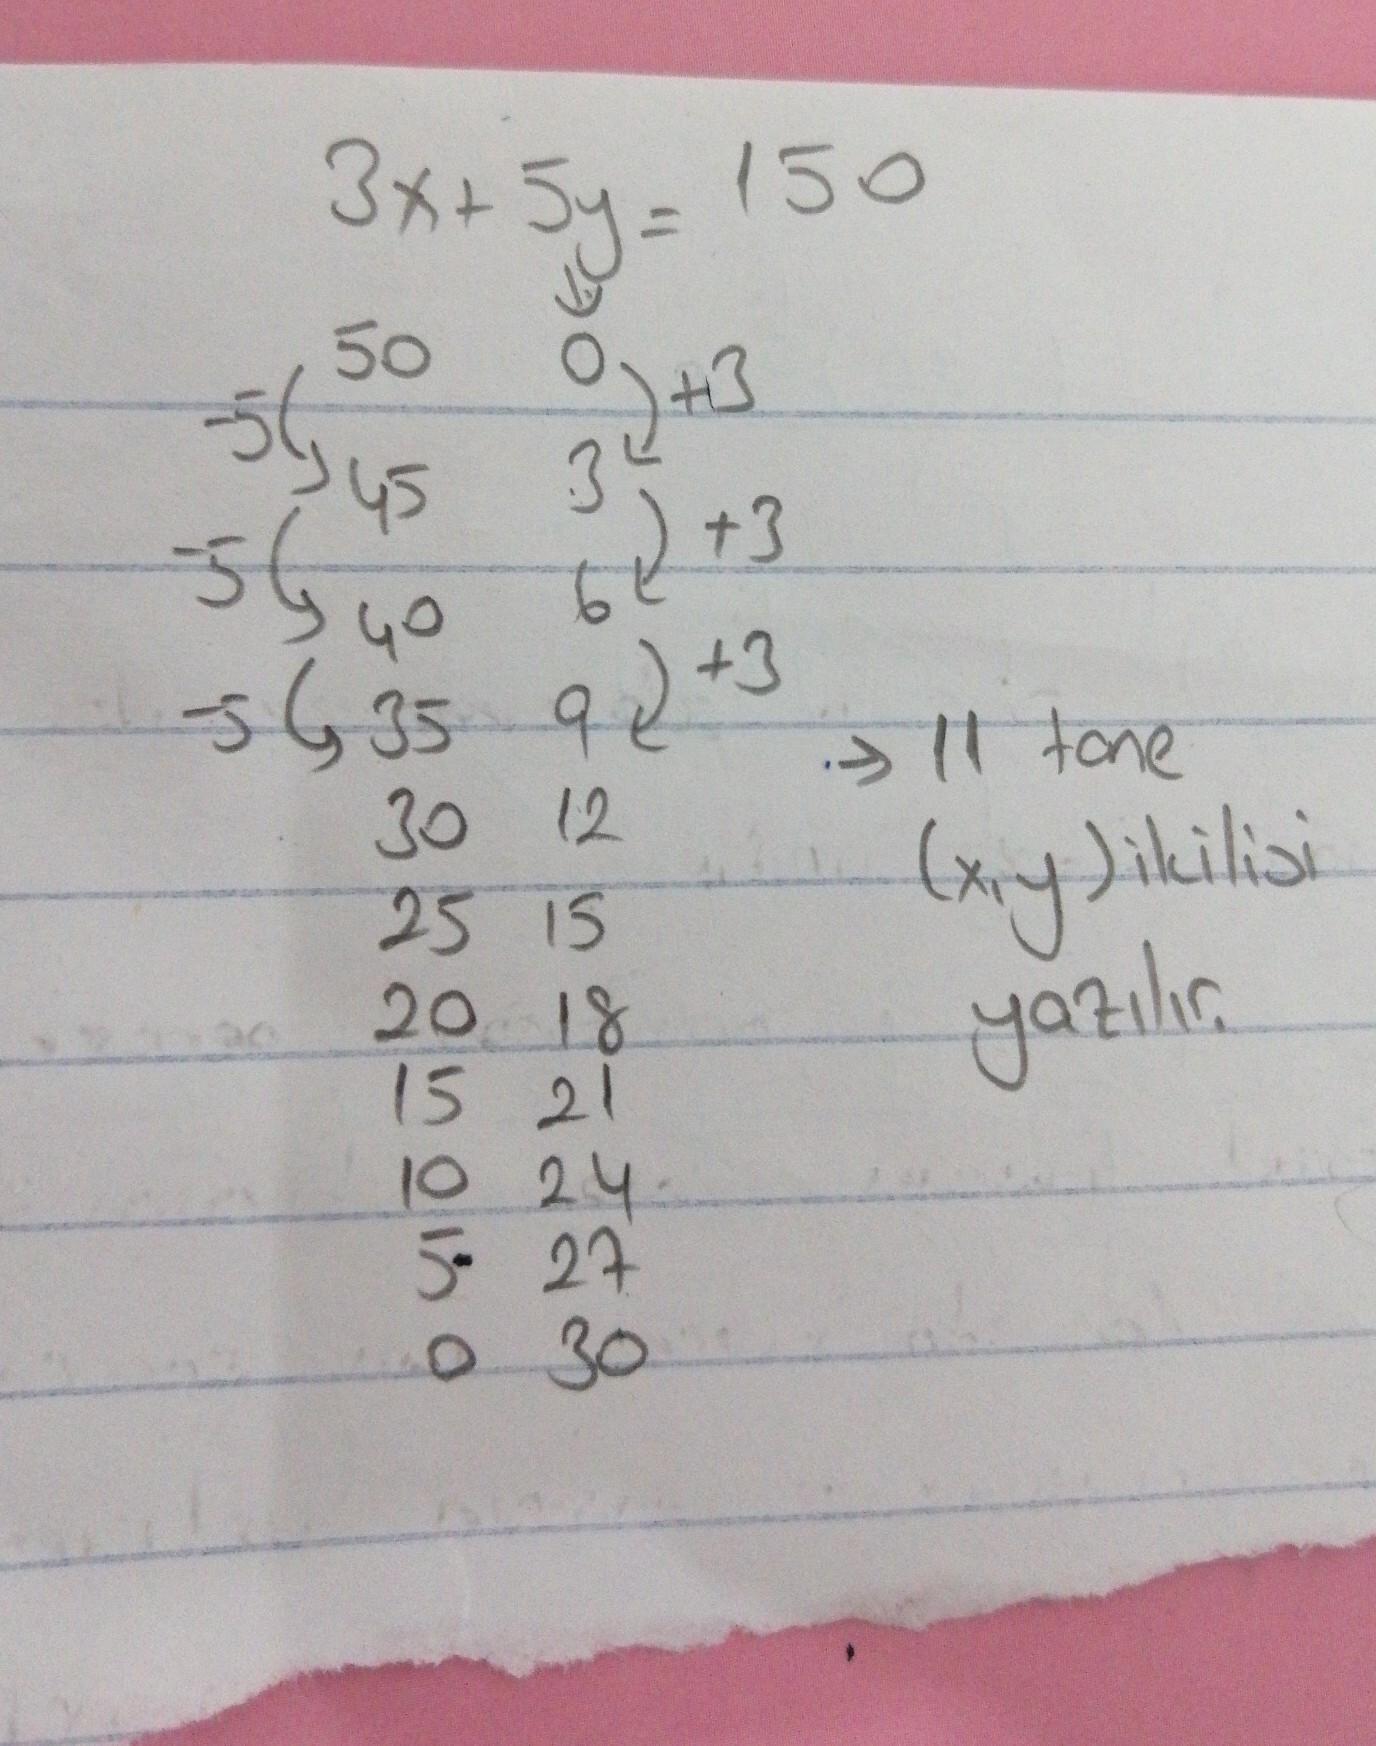 3x + 5y = 150
50 0
-5 +3
45 3
-5 +3
40 6
-5 +3
35 9
30 12
25 15
20 18
15 21
10 24
5 27
0 30
→ 11 tane
(x,y) ikilisi
yazılır.